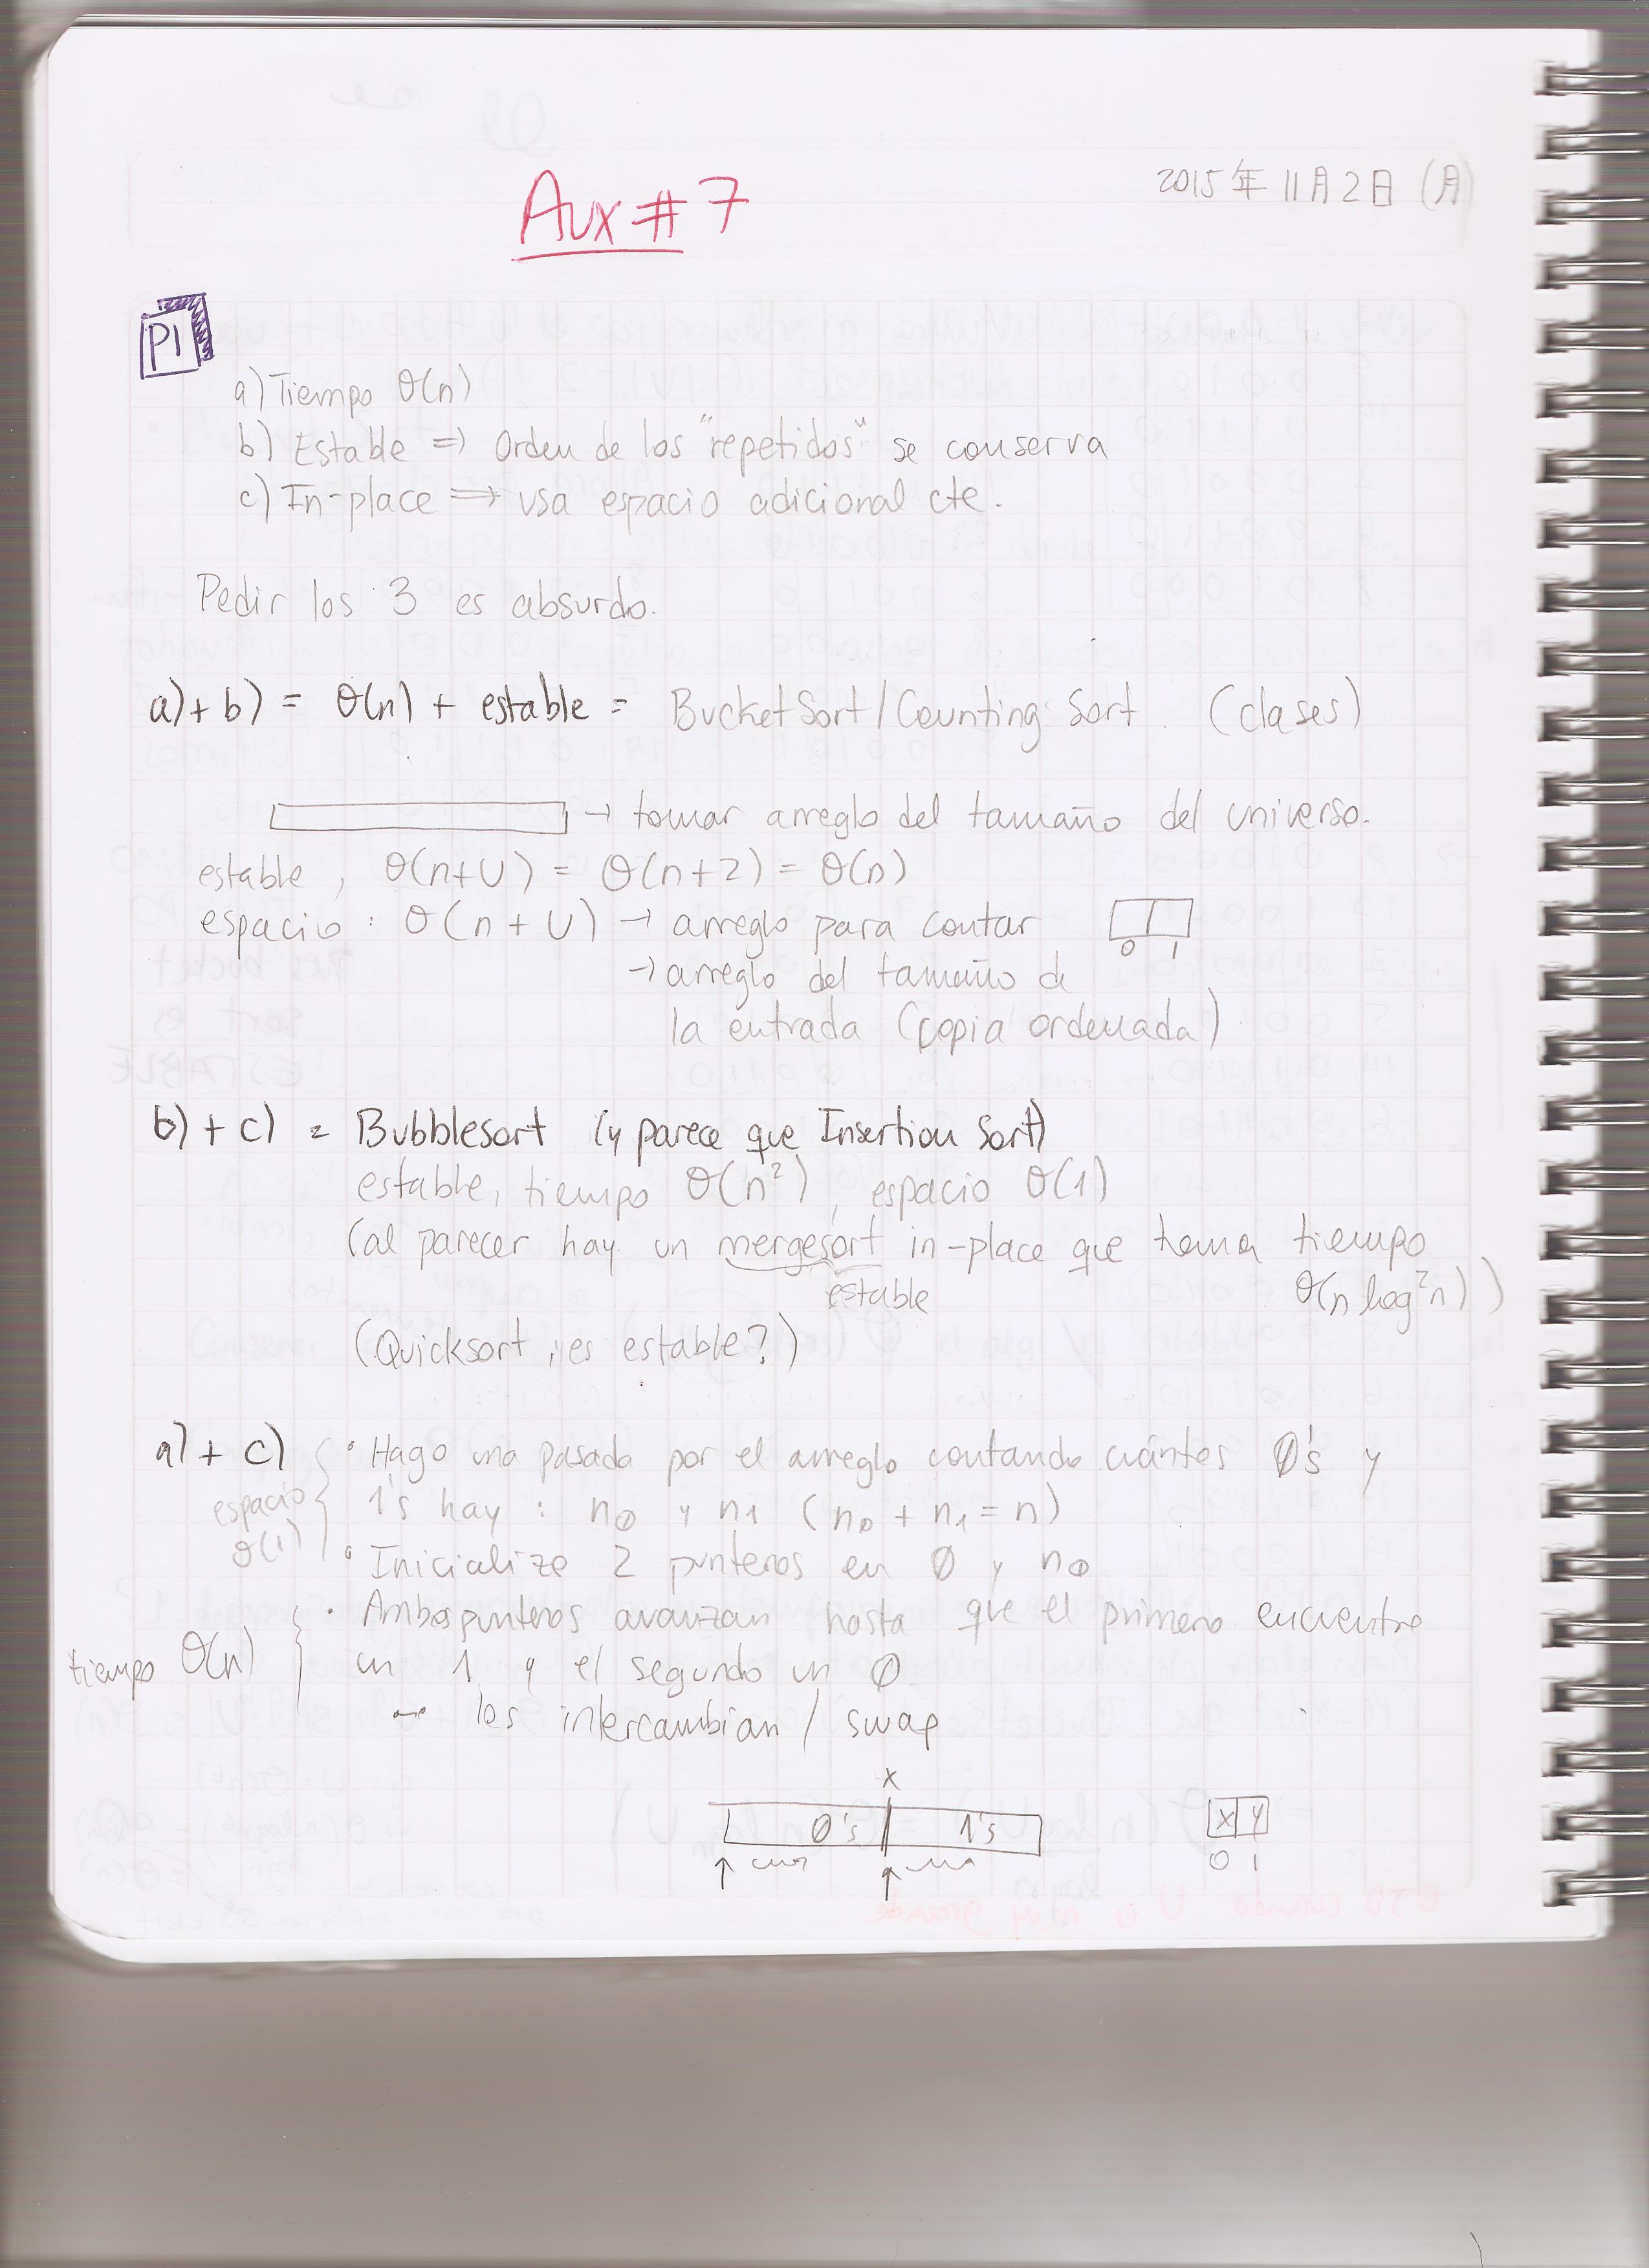 2015年11月2日(月)
Aux #7
P1
a) Tiempo Θ(n)
b) Estable => Orden de los "repetidos" se conserva
c) In-place => usa espacio adicional cte.
Pedir los 3 es absurdo.
a)+b) = Θ(n) + estable = BucketSort/Counting Sort. (clases)
→ tomar arreglo del tamaño del universo.
estable, Θ(n+U) = Θ(n+2) = Θ(n)
espacio: Θ(n+U) → arreglo para contar
0 1
→ arreglo del tamaño de
la entrada (copia ordenada)
b)+c) = Bubblesort (y parece que Insertion Sort)
estable, tiempo Θ(n²), espacio Θ(1)
(al parecer hay un mergesort in-place que toma tiempo
estable Θ(n log²n))
(Quicksort ¿es estable?)
a)+c) • Hago una pasada por el arreglo contando cuántos 0's y
espacio 1's hay: n0 y n1 (n0 + n1 = n)
Θ(1) • Inicialize 2 punteros en 0 y n0
• Ambos punteros avanzan hasta que el primero encuentre
tiempo Θ(n) un 1 y el segundo un 0
→ los intercambian / swap
x
0's 1's x y
0 1